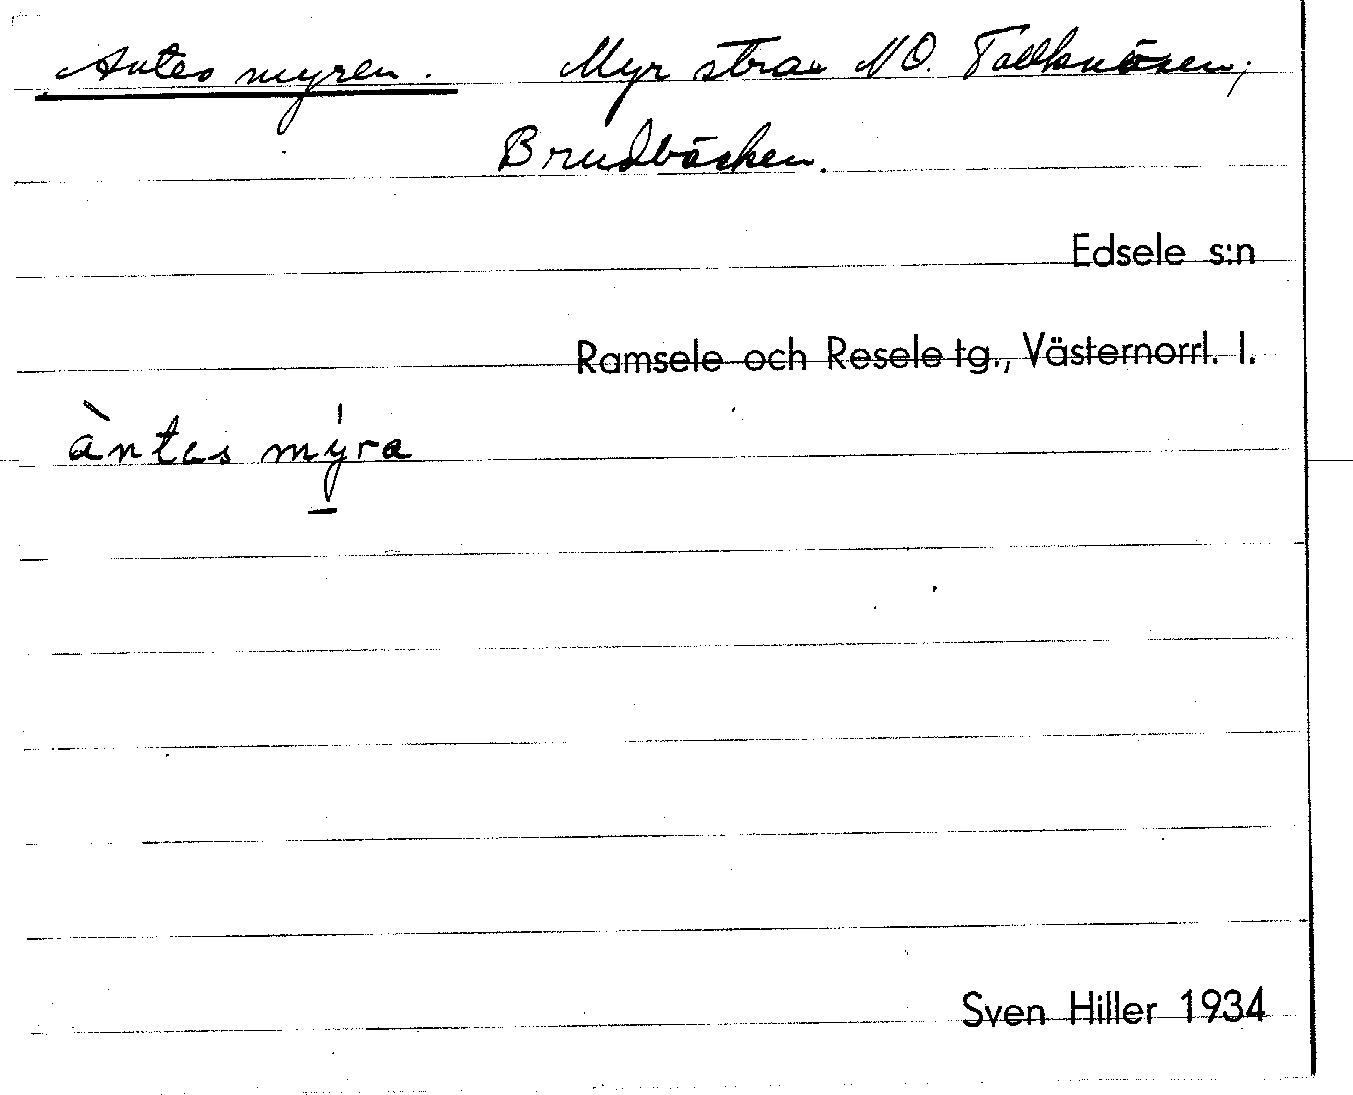 Antes myren. Myr strax NO. Tallknösen,
Brudbäcken.
Edsele s:n
Ramsele och Resele tg., Västernorrl. l.
àntas mýra
Sven Hiller 1934